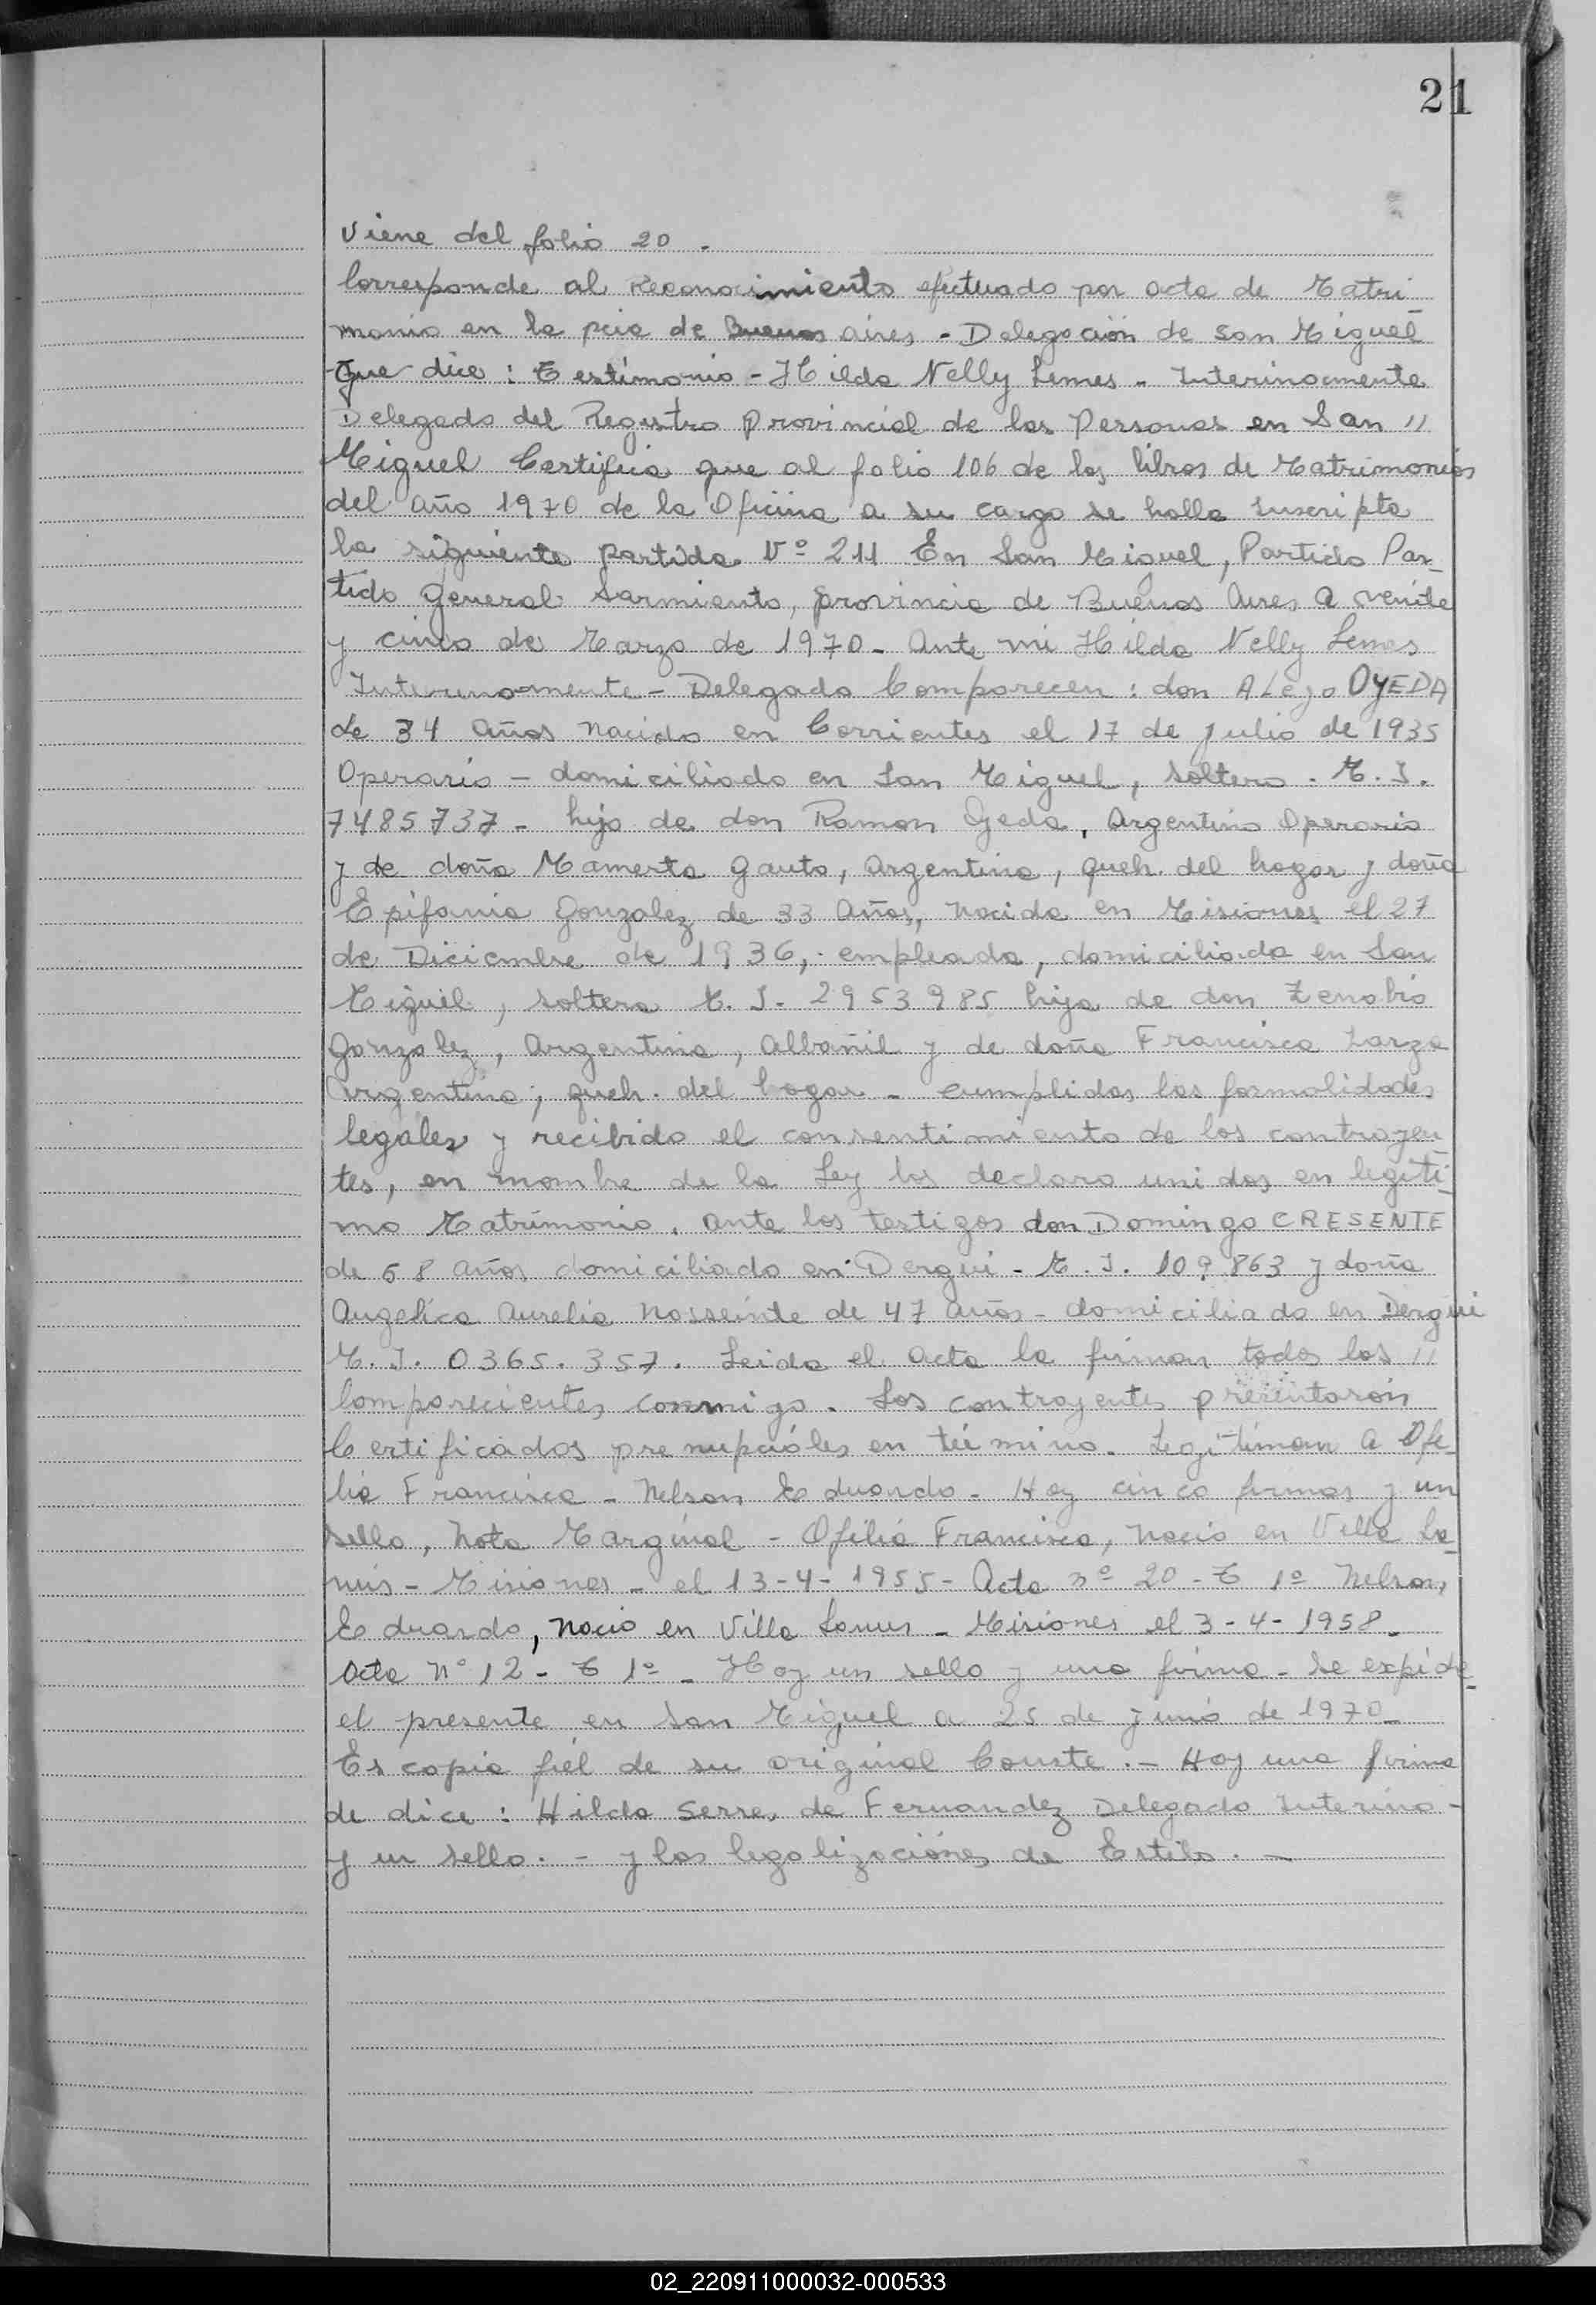 21
Viene del folio 20 -
Corresponde al Reconocimiento efectuado por acta de Matri
monio en la pcia de Buenos aires - Delegación de San Miguel
Que dice: Testimonio - Hilda Nelly Lemes - Interinamente
Delegada del Registro Provincial de las Personas en San //
Miguel Certifica que al folio 106 de los libros de Matrimonios
del año 1970 de la Oficina a su cargo se halla Inscripta
la siguiente partida Nº 211 En San Miguel, Partido Par-
tido General Sarmiento, provincia de Buenos Aires a veinte
y cinco de Marzo de 1970 - Ante mi Hilda Nelly Lemes
Interinamente - Delegada Comparecen: don ALejo OJEDA
de 34 años nacido en Corrientes el 17 de julio de 1935
Operario - domiciliado en San Miguel, soltero. M.I.
7485737 - hijo de don Ramon Ojeda, Argentino Operario
y de doña Mamerta Gauto, Argentina, queh. del hogar y doña
Epifania Gonzalez de 33 años, nacida en Misiones el 27
de Diciembre de 1936, empleada, domiciliada en San
Miguel, soltera M.I. 2953985 hija de don Zenobio
Gonzalez, Argentino, Albañil y de doña Francisca Zarza
Argentina; queh. del hogar - cumplidas las formalidades
legales y recibido el consentimiento de los contrayen
tes, en nombre de la Ley los declaro unidos en legiti-
mo Matrimonio, ante los testigos don Domingo CRESENTE
de 58 años domiciliado en Derqui - M.I. 109863 y doña
Angelica Aurelia de 47 años - domiciliada en Derqui
M.I. 0365.357. Leida el Acta la firman todos los //
Comparecientes conmigo. Los contrayentes presentarón
Certificados prenupciáles en término. Legitiman a Ofe-
lia Francisca - Nelson Eduardo - Hay cinco firmas y un
sello, Nota Marginal - Ofilia Francisca, nació en Villa La-
nus - Misiones - el 13-4-1955 - Acta nº 20 - T 1º Nelson,
Eduardo, nació en Villa Lanus - Misiones el 3-4-1958 -
Acta Nº 12 - T 1º - Hay un sello y una firma - Se expide
el presente en San Miguel a 25 de junio de 1970 -
Es copia fiél de su original Conste. - Hay una firma
de dice: Hilda Serre, de Fernandez Delegada Interina -
y un sello. - y las legalizaciónes de Estilo. -
02_220911000032-000533